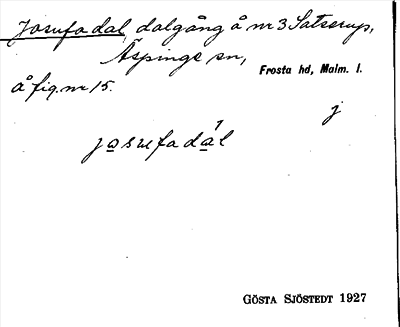 Josufadal, dalgång å nr 3 Satserup,
Äspinge sn,
Frosta hd, Malm. l.
å fig. nr 15.
j
josufadál
GÖSTA SJÖSTEDT 1927